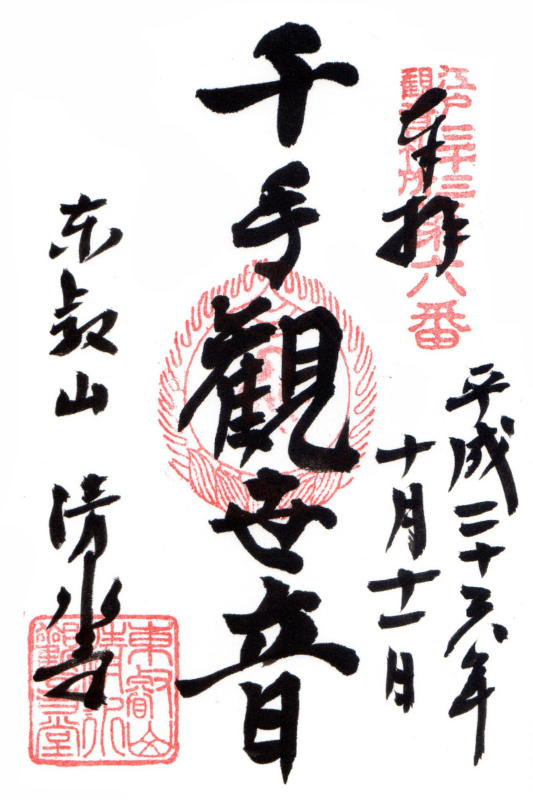 江戸三十三
観音札所第六番
奉拝
平成二十六年
十月十一日
千手觀世音
东叡山 清水寺
東叡山
清水
觀音堂